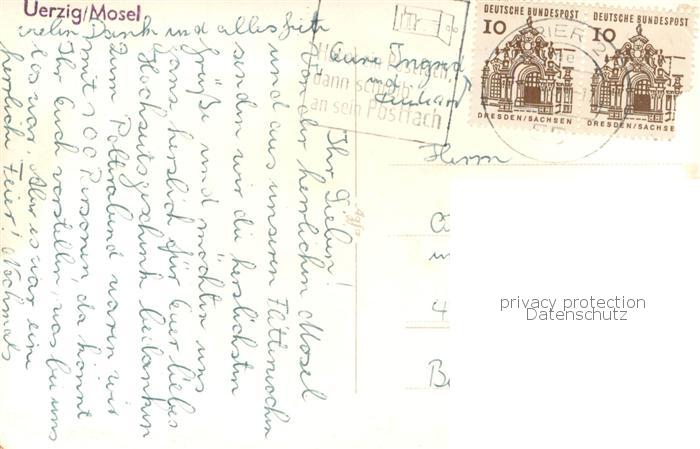 Uerzig/Mosel
Ihr Lieben!
Von der herrlichen Mosel
und aus unseren Flitterwochen
senden wir die herzlichsten
Grüße und möchten uns
ganz herzlich für Euer liebes
Hochzeitsgeschenk bedanken
zum Polterabend waren wir
mit 100 Personen, da könnt
Ihr Euch vorstellen, was bei uns
los war. Aber es war eine
herrliche Feier! Nochmals
vielen Dank und alles Gute
Eure Ingrid
und
dann schreib
an sein Postfach
DEUTSCHE BUNDESPOST
10
DRESDEN/SACHSEN
DEUTSCHE BUNDESPOST
10
DRESDEN/SACHSE
Herrn
4
privacy protection
Datenschutz